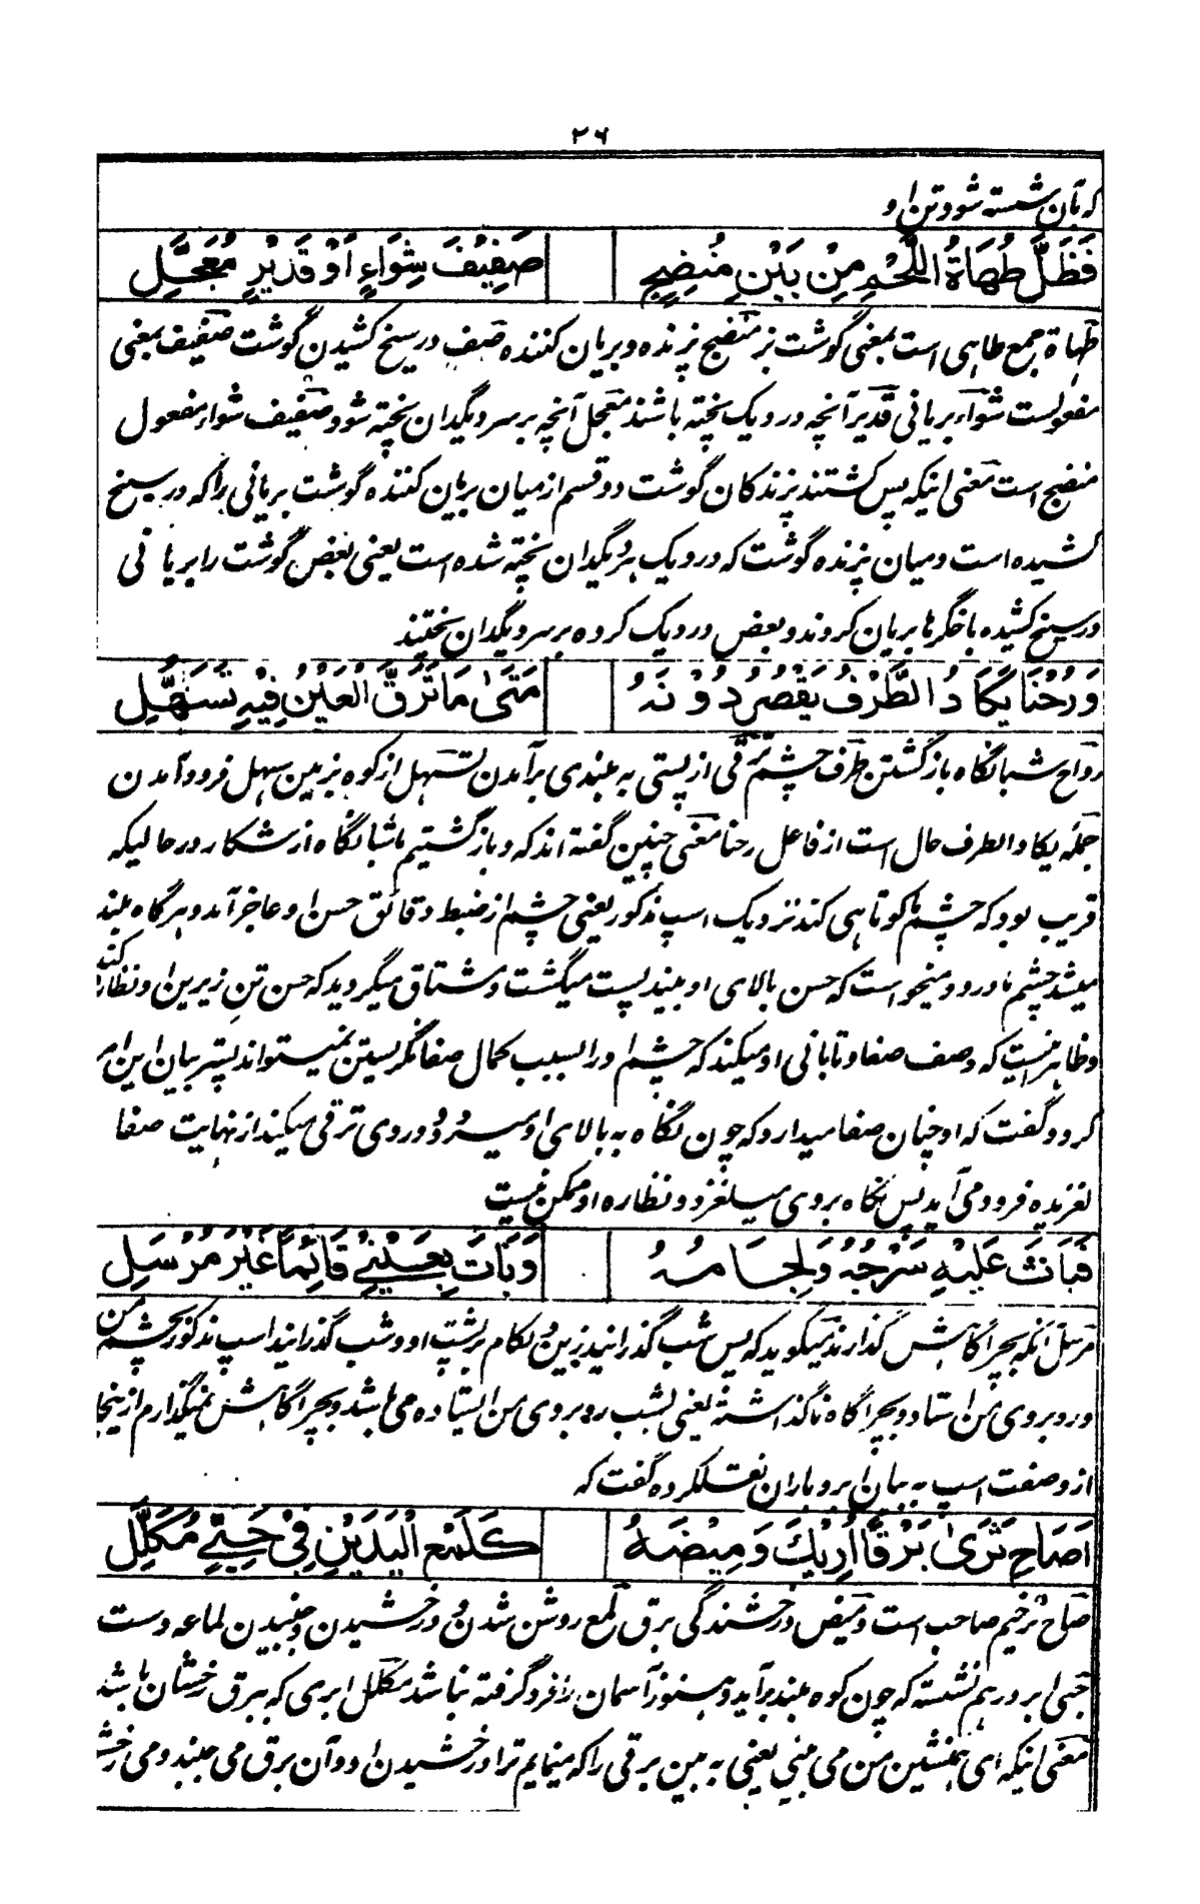 ۲۶
که بآن شسته شود تن او
فَظَلَّ طُهَاةُ اللَّحْمِ مِنْ بَيْنِ مُنْضِجٍ صَفِيْفَ شِوَاءٍ أَوْ قَدِيْرٍ مُعَجَّلِ
طهاة جمع طاهی است بمعنی گوشت پز منضج پزنده و بریان کننده صف در سیخ کشیدن گوشت صفیف بمعنی
مفعولست شواء بریانی قدیر آنچه در دیک پخته باشند معجل آنچه بر سر دیگدان پخته شود صفیف شواء مفعول
منضج است معنی اینکه پس گشتند پزندکان گوشت دو قسم از میان بریان کننده گوشت بریانی را که در سیخ
کشیده است و میان پزنده گوشت که در دیک بر دیگدان پخته شده است یعنی بعض گوشت را بریانی
در سیخ کشیده با خگرها بریان کردند و بعض در دیک کرده بر سر دیگدان پختند
وَرُحْنَا يَكَادُ الطَّرْفُ يَقْصُرُ دُوْنَهُ مَتَىٰ مَا تَرَقَّ الْعَيْنُ فِيْهِ تَسَهَّلِ
رواح شبانگاه بازگشتن طرف چشم ترقی از پستی به بلندی برآمدن تسهل از کوه بزمین سهل فرود آمدن
جمله یکاد الطرف حال است از فاعل رحنا معنی چنین گفته اند که و بازگشتیم ما شبانگاه از شکار در حالیکه
قریب بود که چشم ما کوتاهی کند نزدیک اسپ مذکور یعنی چشم از ضبط دقائق حسن او عاجز آمد و هرگاه بلند
میشد چشم ما در و میخواست که حسن بالای او بیند پست میگشت و مشتاق میگردید که حسن تن زیرین او نظاره کند
و ظاهر اینست که وصف صفا و تابانی او میکند که چشم او را بسبب کمال صفا نگریستن نمیتواند پستر بیان این امر
کرد و گفت که او چنان صفا میدارد که چون نگاه به بالای او میرود و در وی ترقی میکند از نهایت صفا
لغزیده فرود می آید پس نگاه بر وی میلغزد و نظاره او ممکن نیست
فَبَاتَ عَلَيْهِ سَرْجُهُ وَلِجَامُهُ وَبَاتَ بِعَيْنِيْ قَائِمًا غَيْرَ مُرْسَلِ
مرسل آنکه بچراگاهش گذارند میگوید که پس شب گذرانید زین و لگام بر پشت او و شب گذرانید اسپ مذکور بچشم من
و روبروی من استاد و بچراگاه ناگذاشته یعنی بشب روبروی من ایستاده می باشد و بچراگاهش نمیگذارم از ینجا
از وصفت اسپ به بیان ابر و باران نقل کرده گفت که
اَصَاحِ تَرَىٰ بَرْقًا اُرِيْكَ وَمِيْضَهُ كَلَمْعِ الْيَدَيْنِ فِيْ حَبِيٍّ مُكَلَّلِ
صاح ترخیم صاحب است ومیض درخشندگی برق لمع روشن شدن و درخشیدن و جنبیدن لماعه دست
حبی ابر در هم نشسته که چون کوه بلند برآید و هنوز آسمان را فرو گرفته نباشد مکلل ابری که ببرق رخشان باشد
معنی اینکه ای همنشین من می بینی یعنی به بین برقی را که مینمایم ترا درخشیدن او و آن برق می جنبد و می